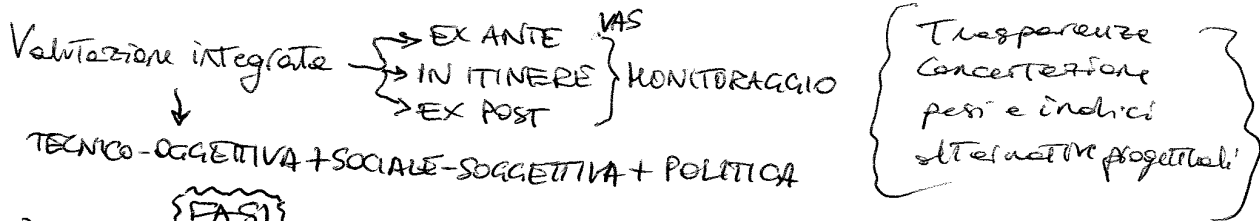 VAS
Valutazione integrata → EX ANTE
→ IN ITINERE } MONITORAGGIO
→ EX POST
↓
TECNICO-OGGETTIVA + SOCIALE-SOGGETTIVA + POLITICA
FASI
Trasparenza
Concertazione
pesi e indici
alternative progettuali